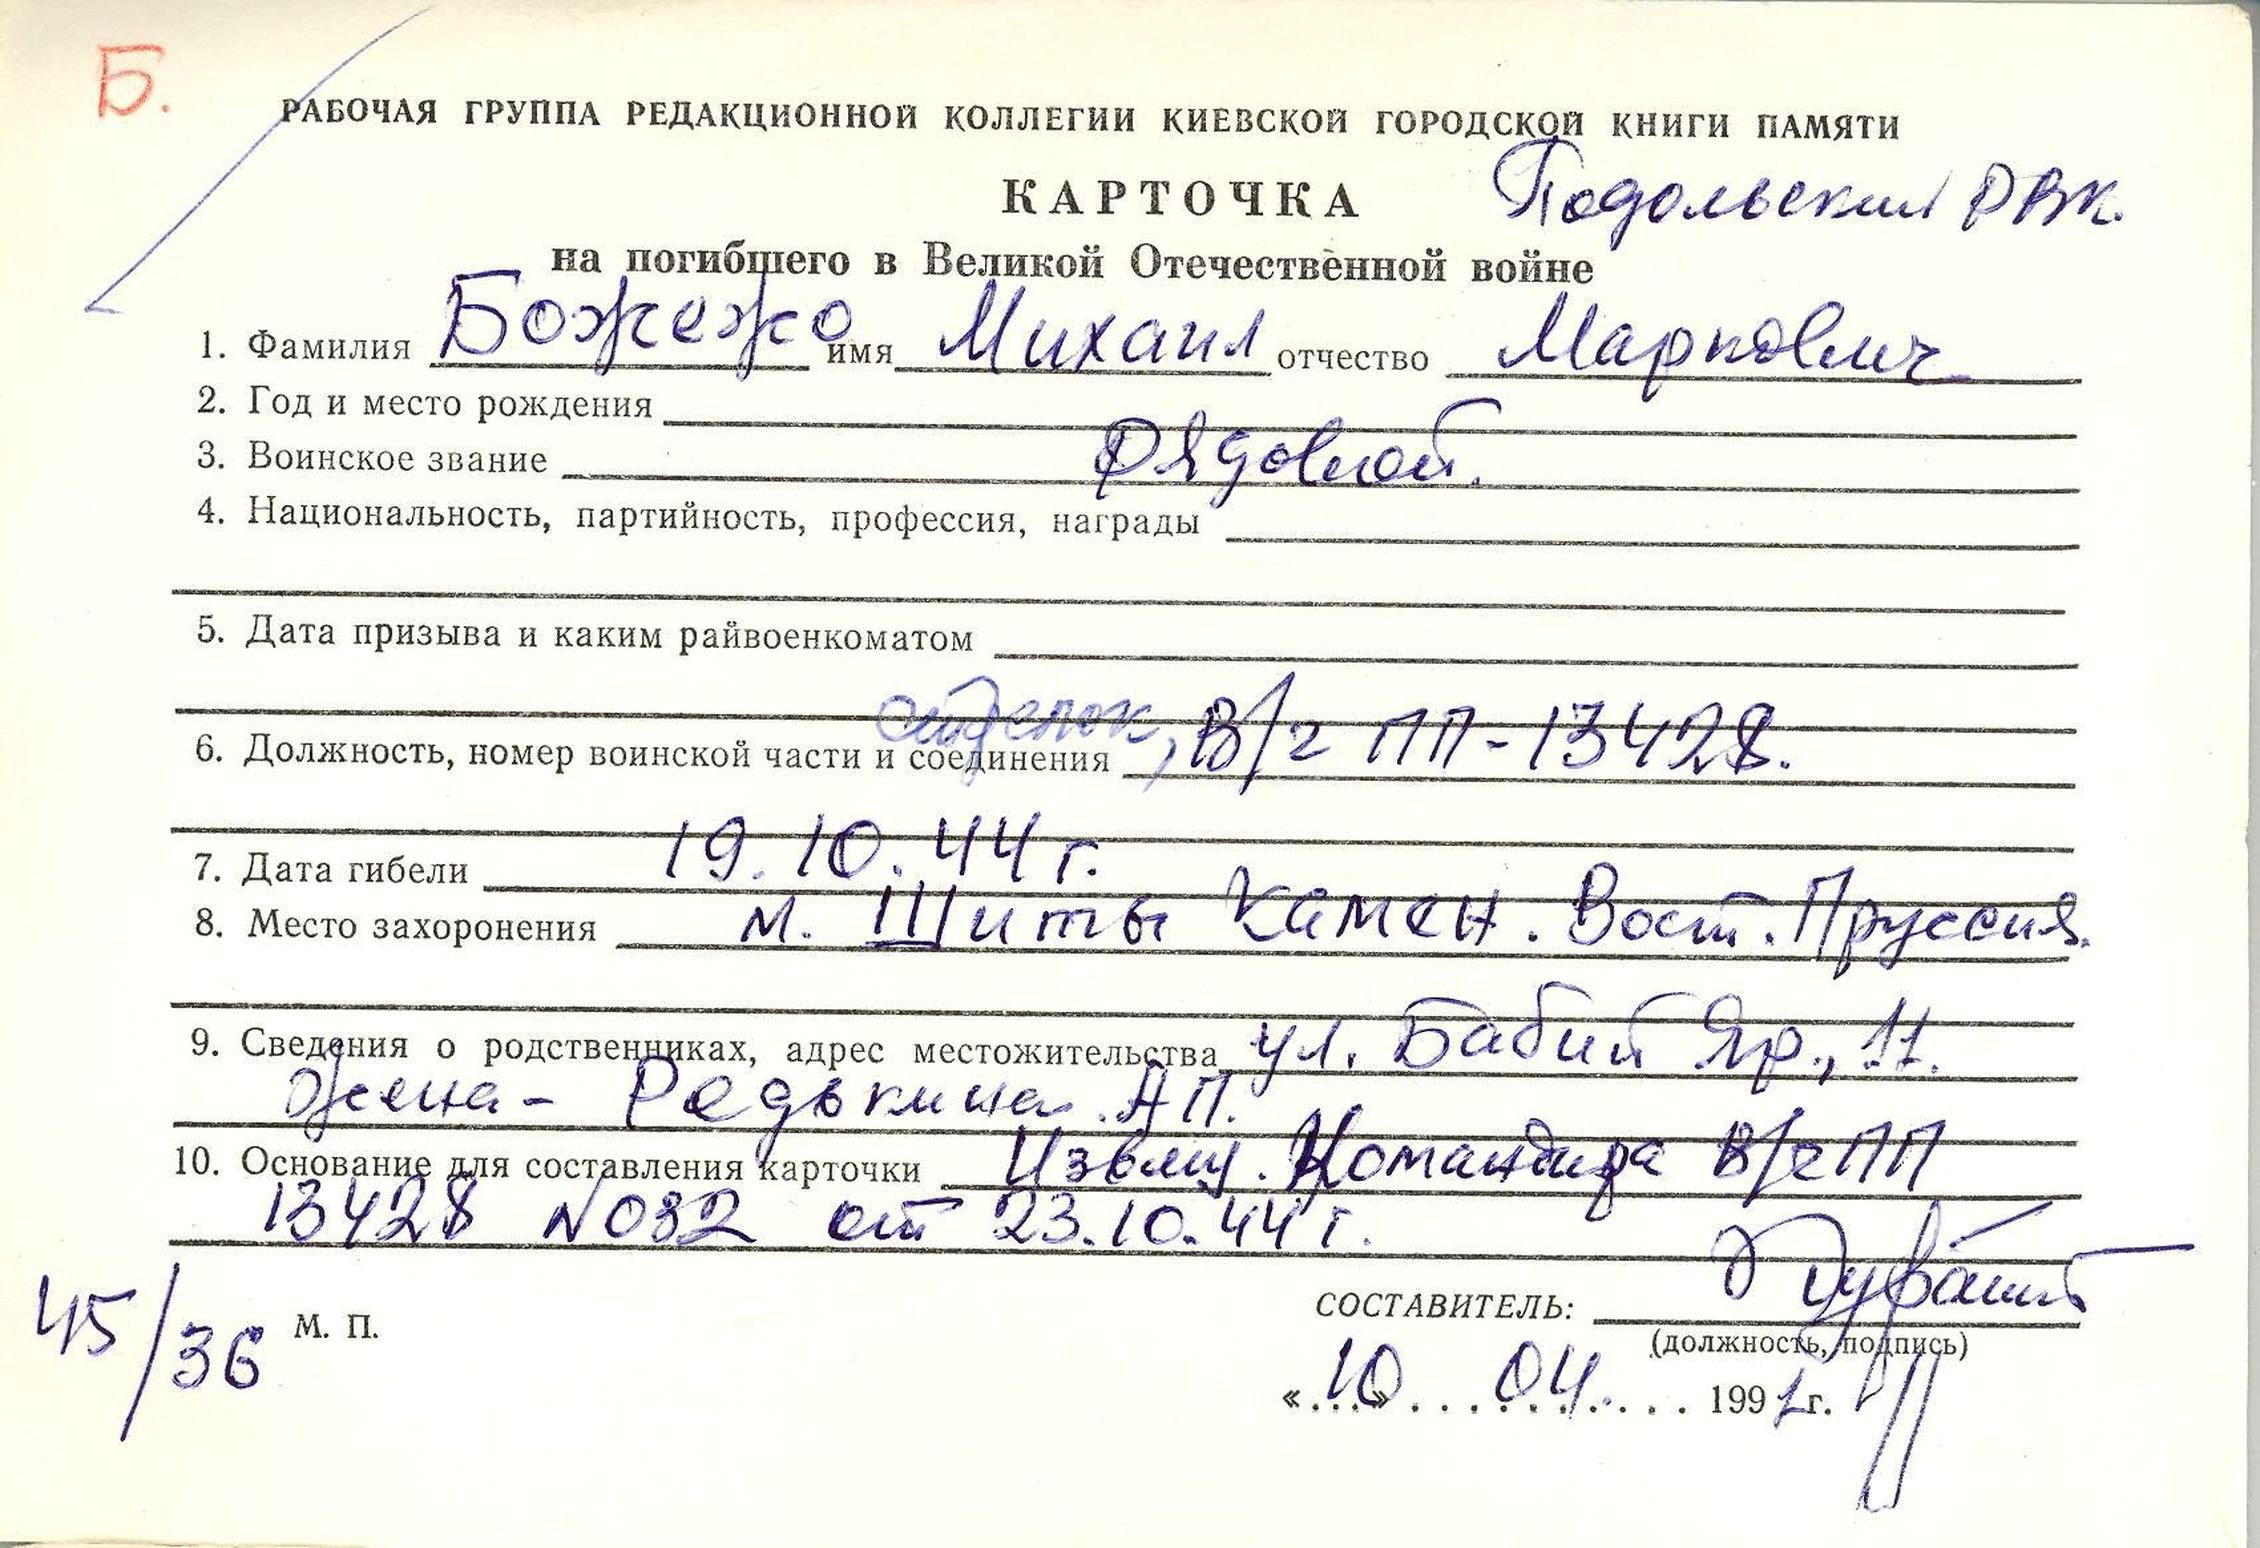 Б.
РАБОЧАЯ ГРУППА РЕДАКЦИОННОЙ КОЛЛЕГИИ КИЕВСКОЙ ГОРОДСКОЙ КНИГИ ПАМЯТИ
КАРТОЧКА Подольский РВК.
на погибшего в Великой Отечественной войне
1. Фамилия Божежо имя Михаил отчество Маркович
2. Год и место рождения
3. Воинское звание Рядовой.
4. Национальность, партийность, профессия, награды
5. Дата призыва и каким райвоенкоматом
6. Должность, номер воинской части и соединения стрелок, В/ч ПП-13428.
7. Дата гибели 19.10.44 г.
8. Место захоронения м. Шиты Камен. Вост. Пруссия.
9. Сведения о родственниках, адрес местожительства ул. Бабий Яр., 11.
жена - Редькина А П.
10. Основание для составления карточки Извещ. Командира В/ч ПП
13428 №032 от 23.10.44 г.
45/36 М. П.
СОСТАВИТЕЛЬ:
(должность, подпись)
«10» 04. 1991 г.